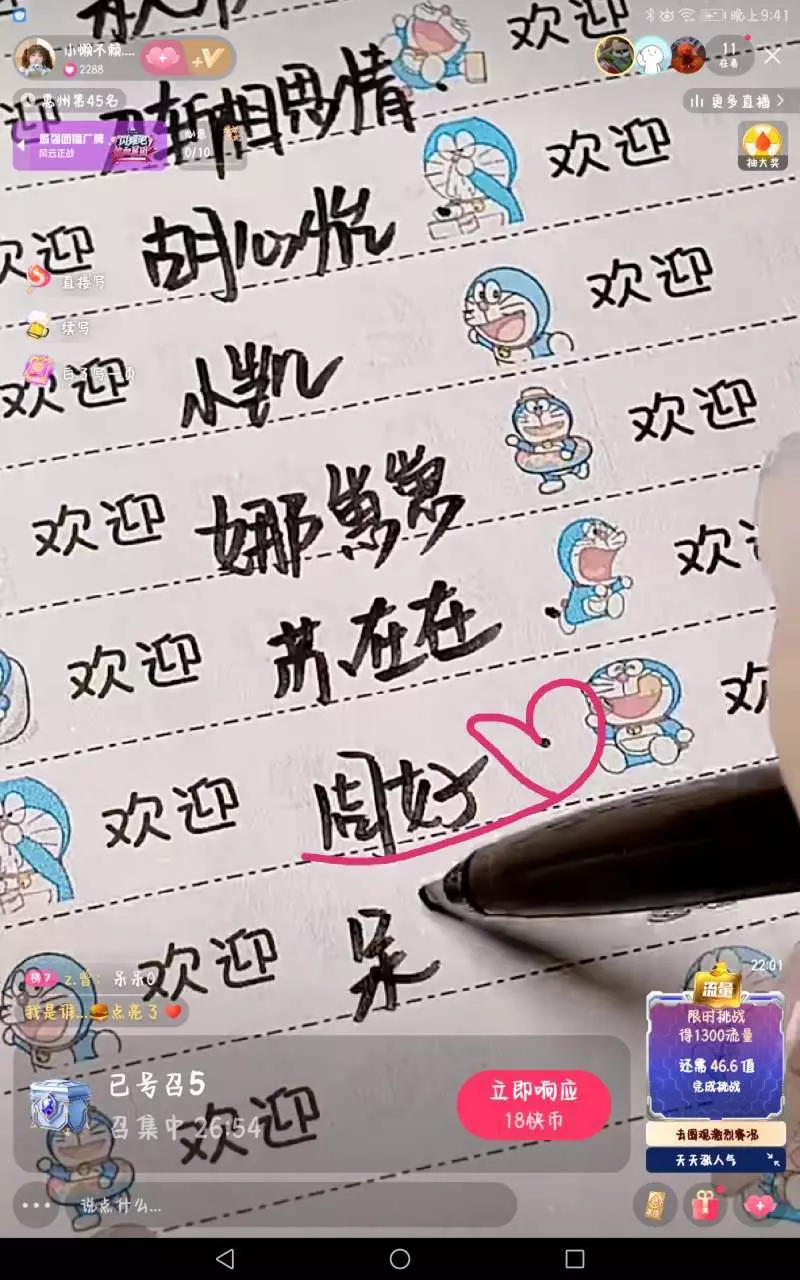 晚上9:41
小懒不赖....
2288
+V
11
在看
惠州第45名
更多直播
欢迎
斩相思情
最强团播厂牌
风云正战
心愿
0/10
抽大奖
欢迎
欢迎 胡心悦
直接写
欢迎
续写
欢迎 小凯
白了写一页
欢迎
欢迎 娜崽崽
欢迎
欢迎 苏在在
欢迎 周好
欢迎 呆
榜7 z.曾: 呆呆
我是谁...点亮了
22:01
流量
限时挑战
得1300流量
还需 46.6 值
完成挑战
去围观激烈赛况
天天涨人气
已号召5
召集中 26:54
立即响应
18快币
欢迎
说点什么...